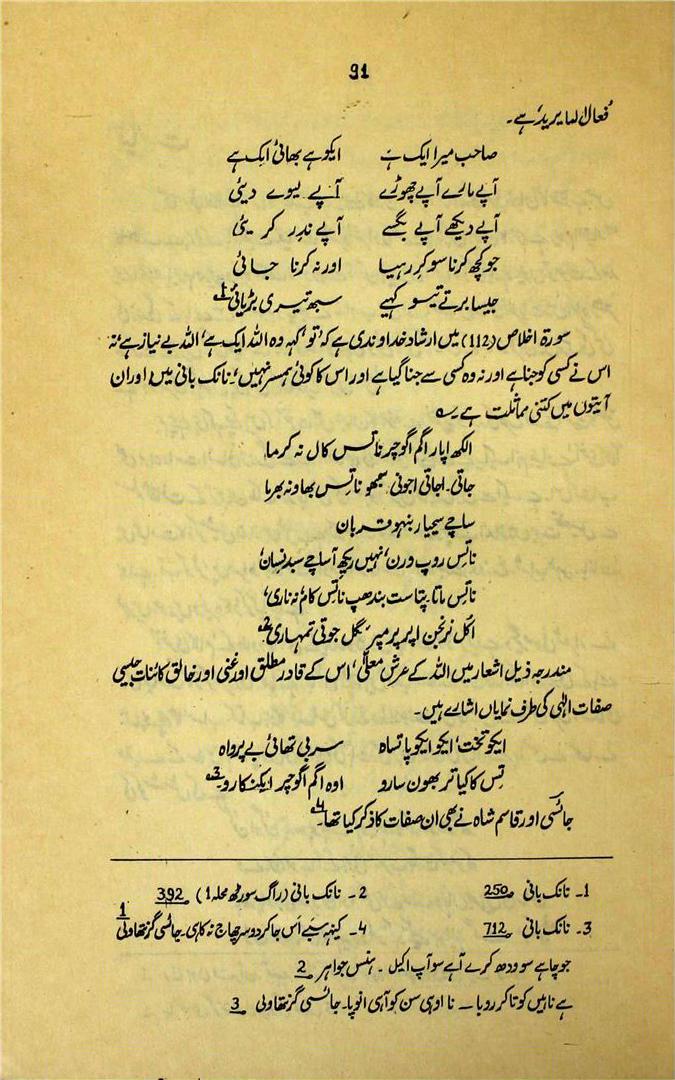 91
’فعال لما یرید‘ ہے۔
صاحب میرا ایک ہے ایکو ہے بھائی ایک ہے
آپے مارے آپے چھوڑے آپے لیوے دیئی
آپے دیکھے آپے بگسے آپے ندر کریئی
جو کچھ کرنا سو کر رہیا اور نہ کرنا جائی
جیسا برتے تیسو کہیے سبھ تیری بڑیائی 1
سورۃ اخلاص (112) میں ارشاد خداوندی ہے کہ ’تو‘ کہہ وہ اللہ ایک ہے‘ اللہ بے نیاز ہے‘ نہ
اس نے کسی کو جنا ہے اور نہ وہ کسی سے جنا گیا ہے اور اس کا کوئی ہمسر نہیں‘۔ نانک بانی میں اور ان
آیتوں میں کتنی مماثلت ہے۔
الکھ اپار اگم اگوچر نا تس کال نہ کرما
جاتی۔ اجاتی اجونی سمبھو نا تِس بھاو نہ بھرما
ساچے سچیار بنہو قربان
نا تِس روپ ورن‘ نہیں ریکھ آ ساچے سبد نسان‘
نا تِس ماتا پتا ست بندھپ نا تِس کام نہ ناری‘
اکُل نرنجن اپر پرمپر‘ سگل جوتی تمہاری 2
مندرجہ ذیل اشعار میں اللہ کے عرش معلّٰی‘ اس کے قادر مطلق اور غنی اور خالق کائنات جیسی
صفات الٰہی کی طرف نمایاں اشارے ہیں۔
ایکو تخت‘ ایکو ایکو پاتساہ سربی تھائی بے پرواہ
تِس کا کیا تر بھون سارو اوہ اگم اگوچر ایکنکارو۔ 3
جائسی اور قاسم شاہ نے بھی ان صفات کا ذکر کیا تھا۔ 4
1۔ نانک بانی 250 2۔ نانک بانی (راگ سورٹھ محلہ 1) 392
3۔ نانک بانی 712 4۔ کینہہ سبے اَس جا کر دوسر چھاج نہ کاہی۔ جائسی گرنتھاولی 1
جو چاہے سو ودھ کرے آہے سو آپ اکیل۔ ہنس جواہر 2
ہے ناہیں کو تا کر روپا۔ نا اوہی سن کو آہی انوپا۔ جائسی گرنتھاولی 3